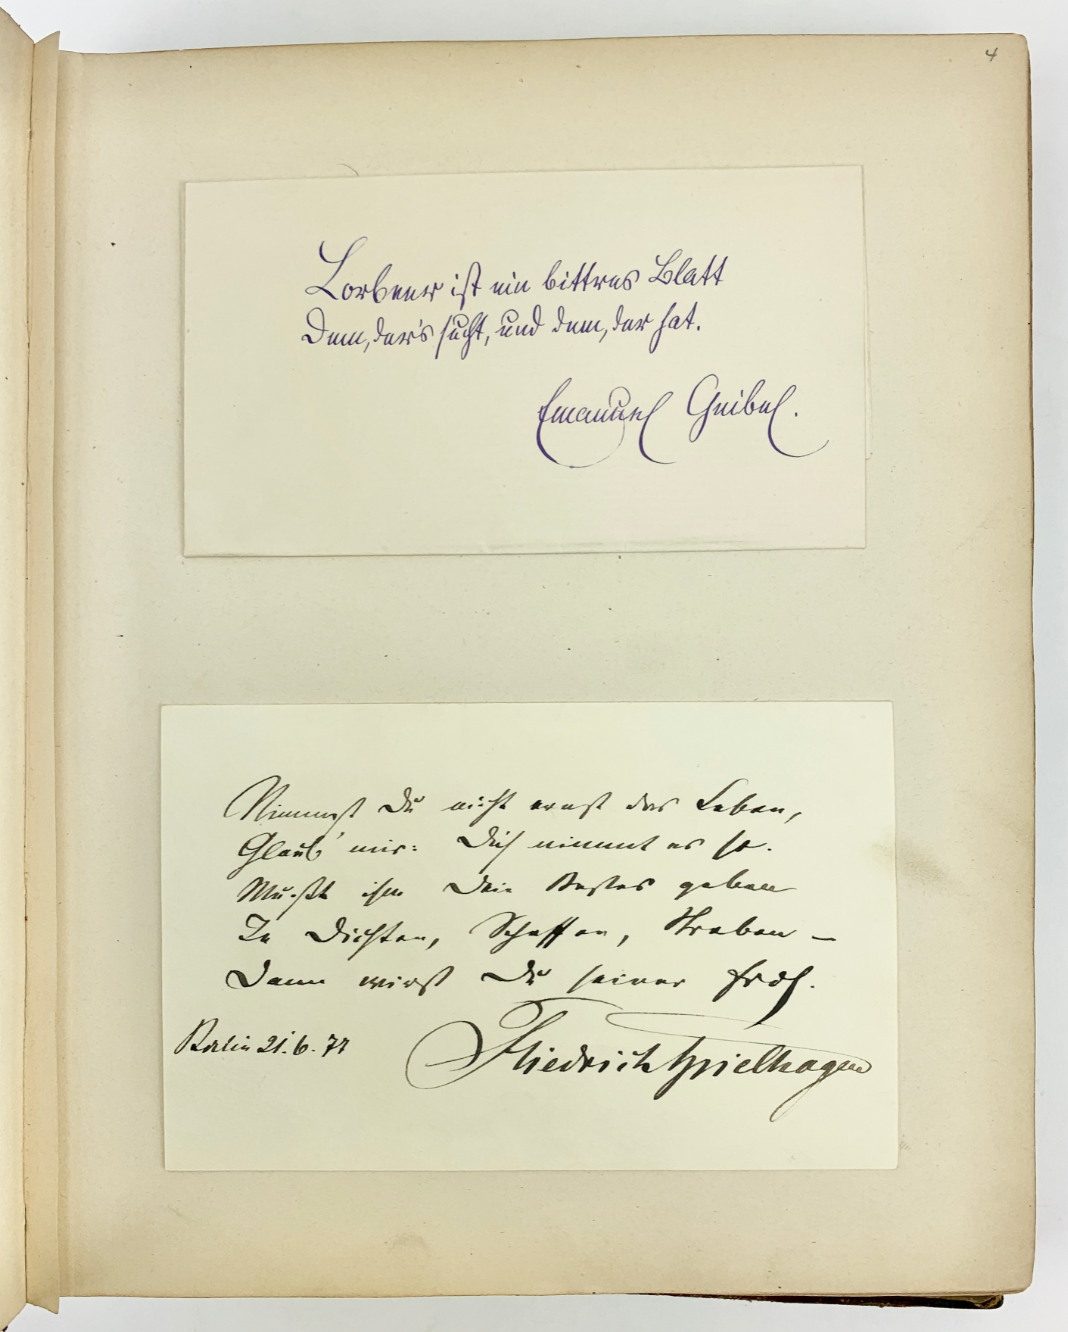 4
Lorbeer ist ein bittres Blatt
Dem, der's sucht, und dem, der hat.
Emanuel Geibel.
Nimmst Du nicht ernst das Leben,
Glaub' mir: Dich nimmt es so.
Mußt ihm Dein Bestes geben
In Dichten, Schaffen, Streben –
Dann wirst Du seiner froh.
Berlin 21. 6. 77
Friedrich Spielhagen